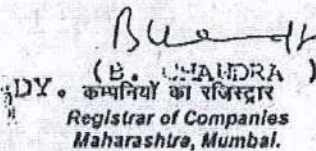 (B. CHANDRA )
DY. कम्पनियों का रजिस्ट्रार
Registrar of Companies
Maharashtra, Mumbai.